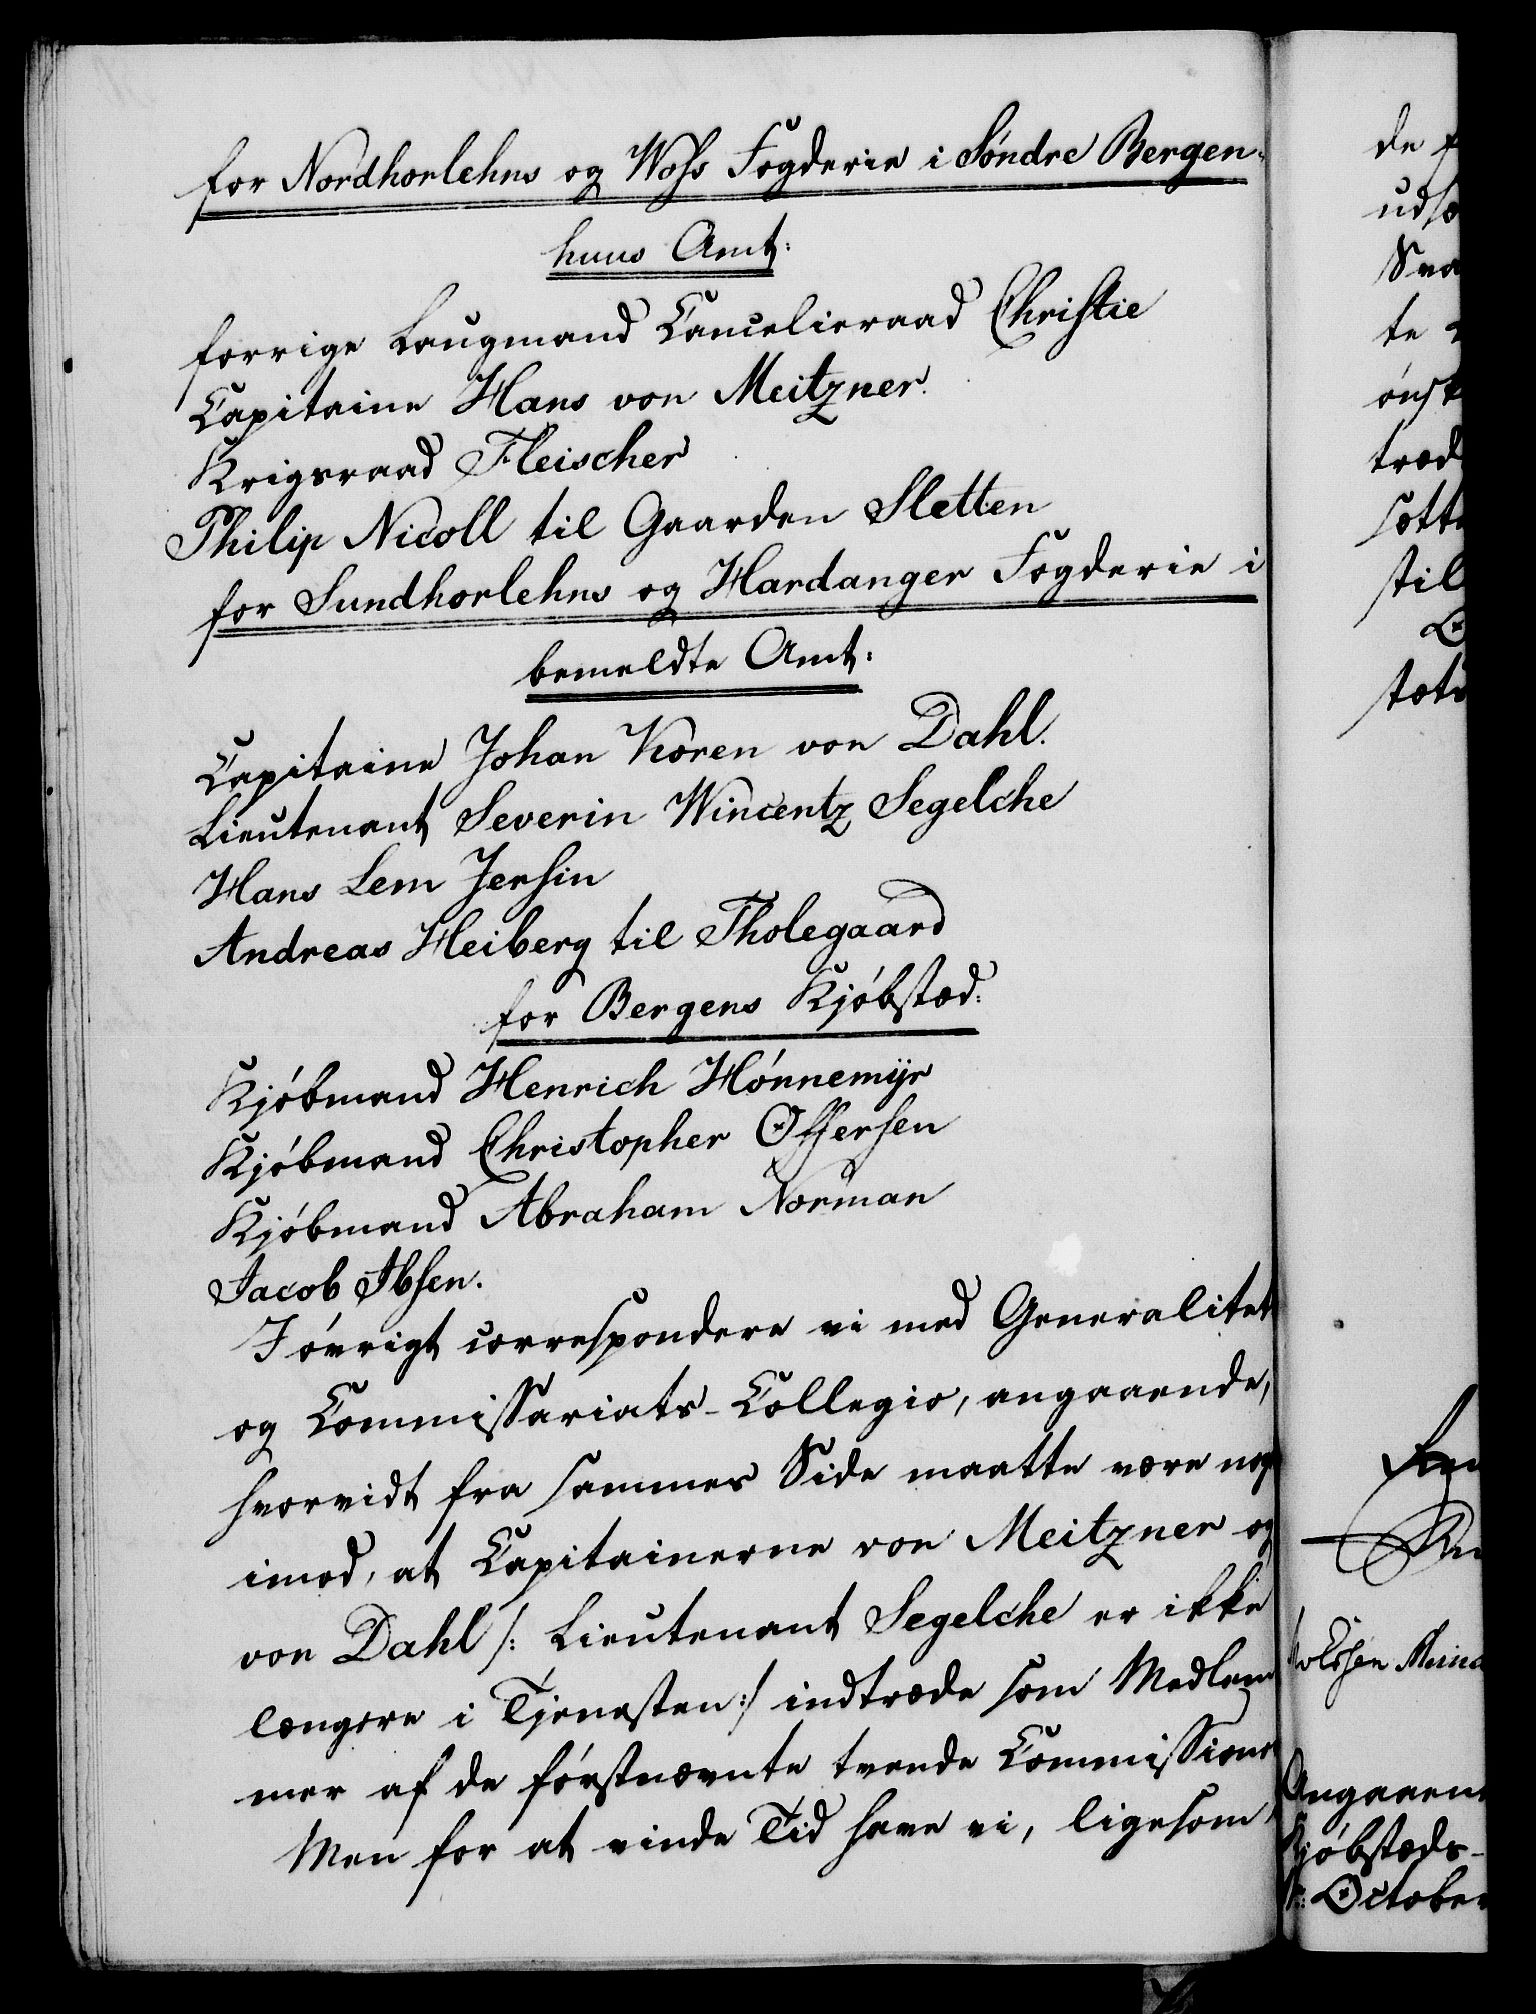 for Nordhorlehns og Wos Fogderie i Søndre Bergen-
huus Amt:
forrige Laugmand Cancelieraad Christie
Capitaine Hans von Meitzner.
Krigsraad Fleischer
Philip Nicoll til Gaarden Sletten
for Sundhorlehns og Hardanger Fogderie i
bemeldte Amt:
Capitaine Johan Koren von Dahl.
Lieutenant Severin Wincentz Segelche
Hans Lem Jersin
Andreas Heiberg til Tholegaard
for Bergens Kjøbstæd:
Kjøbmand Henrich Hønnemijr
Kjøbmand Christopher Offersen
Kjøbmand Abraham Norman
Jacob Ibsen.
I øvrigt correspondere vi med Generalitet
og Commissariats-Collegio, angaaende,
hvorvidt fra sammes Side maatte være nog
imod, at Capitainerne von Meitzner og
von Dahl /: Lieutenant Segelche er ikke
længere i Tjenesten :/ indtræde som Medlem
mer af de førstnævnte tvende Commissioner
Men for at vinde Tid have vi, ligesom
de
udsæ
Sva
te
ønsk
træd
sætte
stil
O
stæds
Angaaen
Kjøbstæds-
October